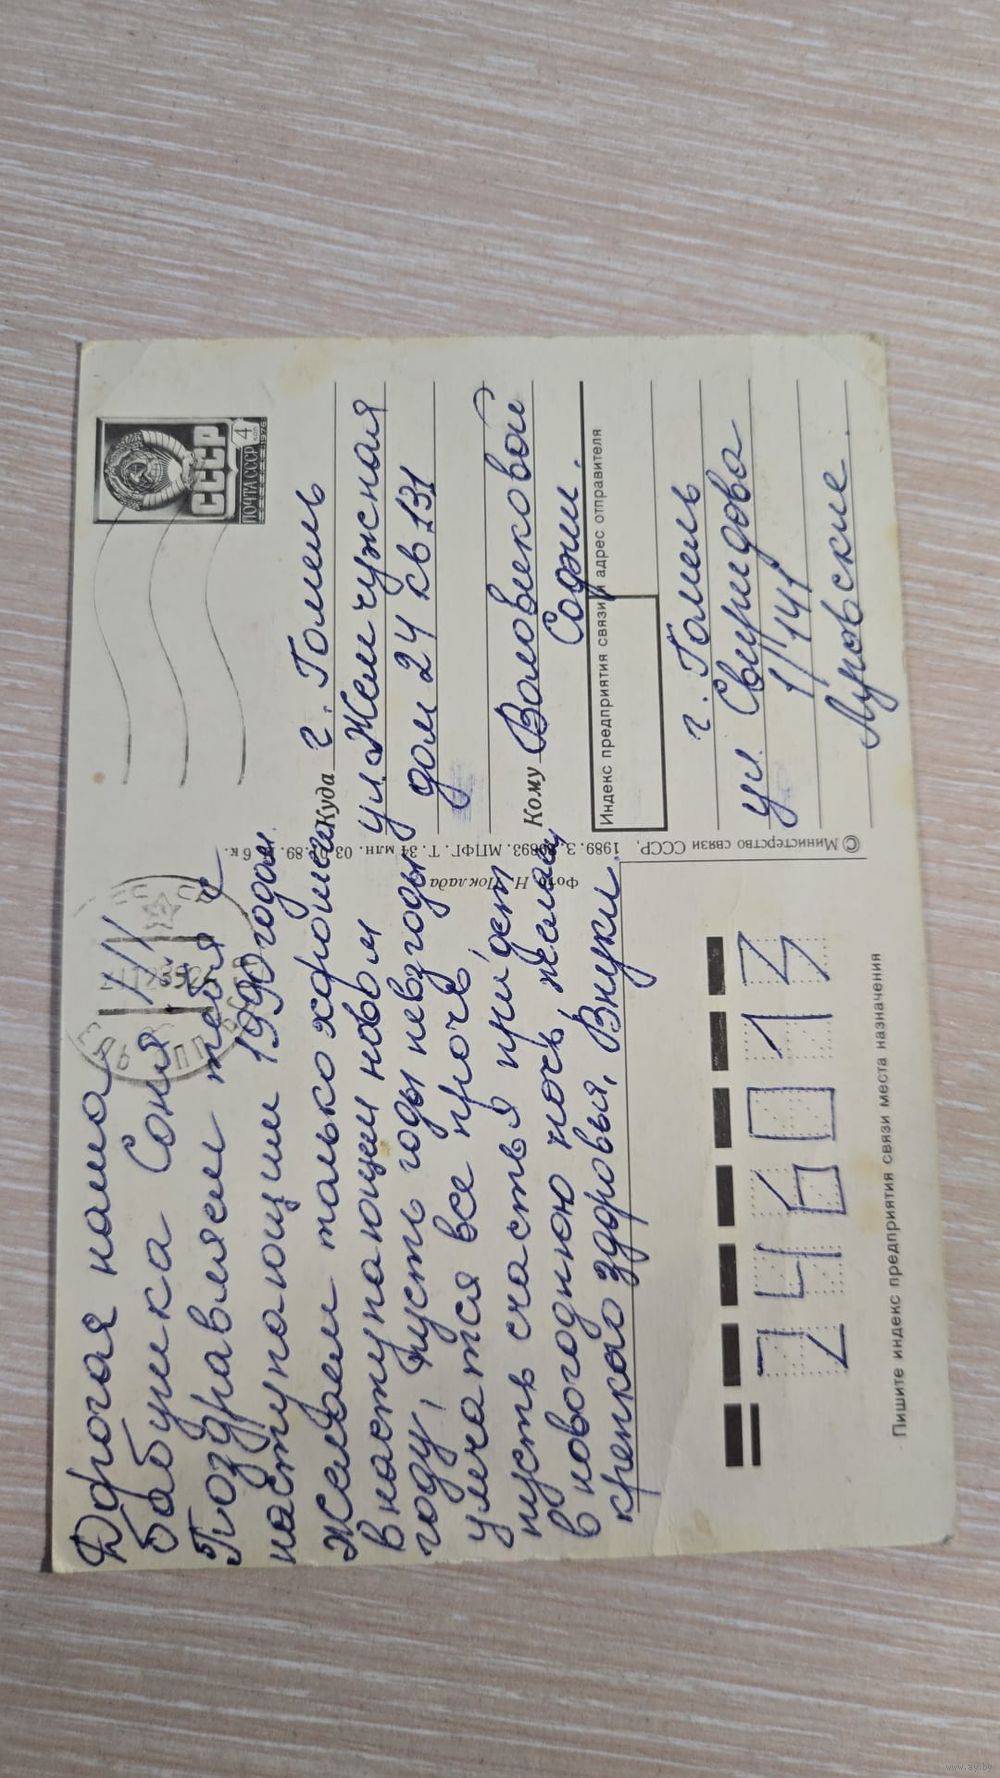 Дорогая наша
бабушка Соня!!!
Поздравляем тебя с
наступающим 1990 годом.
Желаем только хорошего
в наступающем новом
году, пусть годы невзгоды
умчатся все прочь,
пусть счастья придет
в новогоднюю ночь, желаем
крепкого здоровья. Внуки.
ПОЧТА СССР
СССР
4
КОП
1976
Куда г. Гомель
ул. Жемчужная
дом 24 кв 131
Кому Воловиковой
Софии.
Индекс предприятия связи и адрес отправителя
г. Гомель
ул. Свиридова
1/141
Лировские.
© Министерство связи СССР. 1989. З. МПФГ. Т. 34 млн. 03. 89. 6 к.
Фото Н. Поклада
246013
Пишите индекс предприятия связи места назначения
www.ay.by